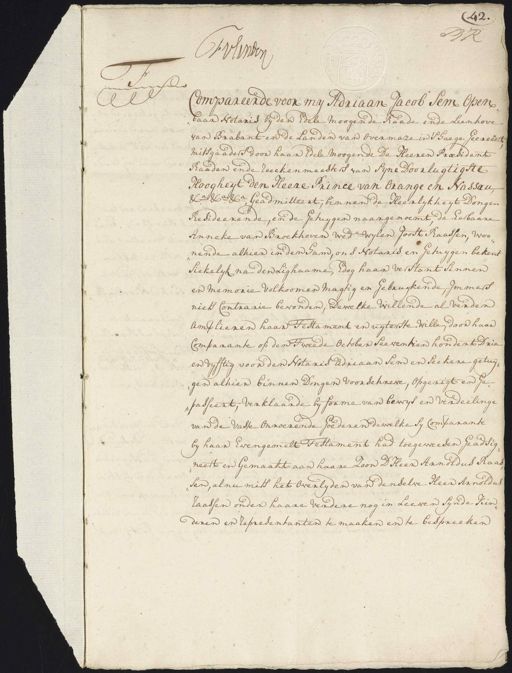 42.
Compareerde voor my Adriaan Jacob Sem Open-
baar Notaris by den Edele Moogende Raade ende Leenhove
van Brabant en de Landen van Overmaze in S'Hage Geresideert
mitsgaaders door haar Edele Moogende De Heeren President
Raaden ende Reekenmeesters van Syne Doorlugtigste
Hoogheyt Den Heere Prince van Orange en Nassau,
&ca &ca &ca Geadmitteert, binnen de Heerlykheyt Dongen
Resideerende, ende Getuygen naargenoemt de Eerbaare
Anneke van Broekhoven Wede Wylen Joost Raassen, woo-
nende alhier inden Ham, ons Notaris en Getuygen bekent
Siekelyk na den Lighaame, Edog haar verstant Sinnen
en Memorie Volkoomen Magtig en Gebruykende, Immers
niets Contrarie bevonden, Dewelke willende alvorden
Amplieeren haar Testament en uyterste wille, door haar
Comparante op den Tweede October Seeventien hondert Drie
en vyfftig voor den Notaris Adriaan Sem en Seekere getuy-
gen alhier binnen Dongen voorschreve, Opgeregt en Ge-
passeert, Verklaarde by forme van bewys en verdeelinge
van de Vaste Onroerende Goederen dewelke Sy Comparante
by haar Evengemelt Testament had toegeweesen Geadsig-
neert en Gemaakt aan haare Zoon D'Heer Arnoldus Raas-
sen, al nu mits het Overlyden van den selve Heer Arnoldus
Raassen onder haare verdere nog in Leeven Synde Kin-
deren en Representanten te maaken en te bespreeken